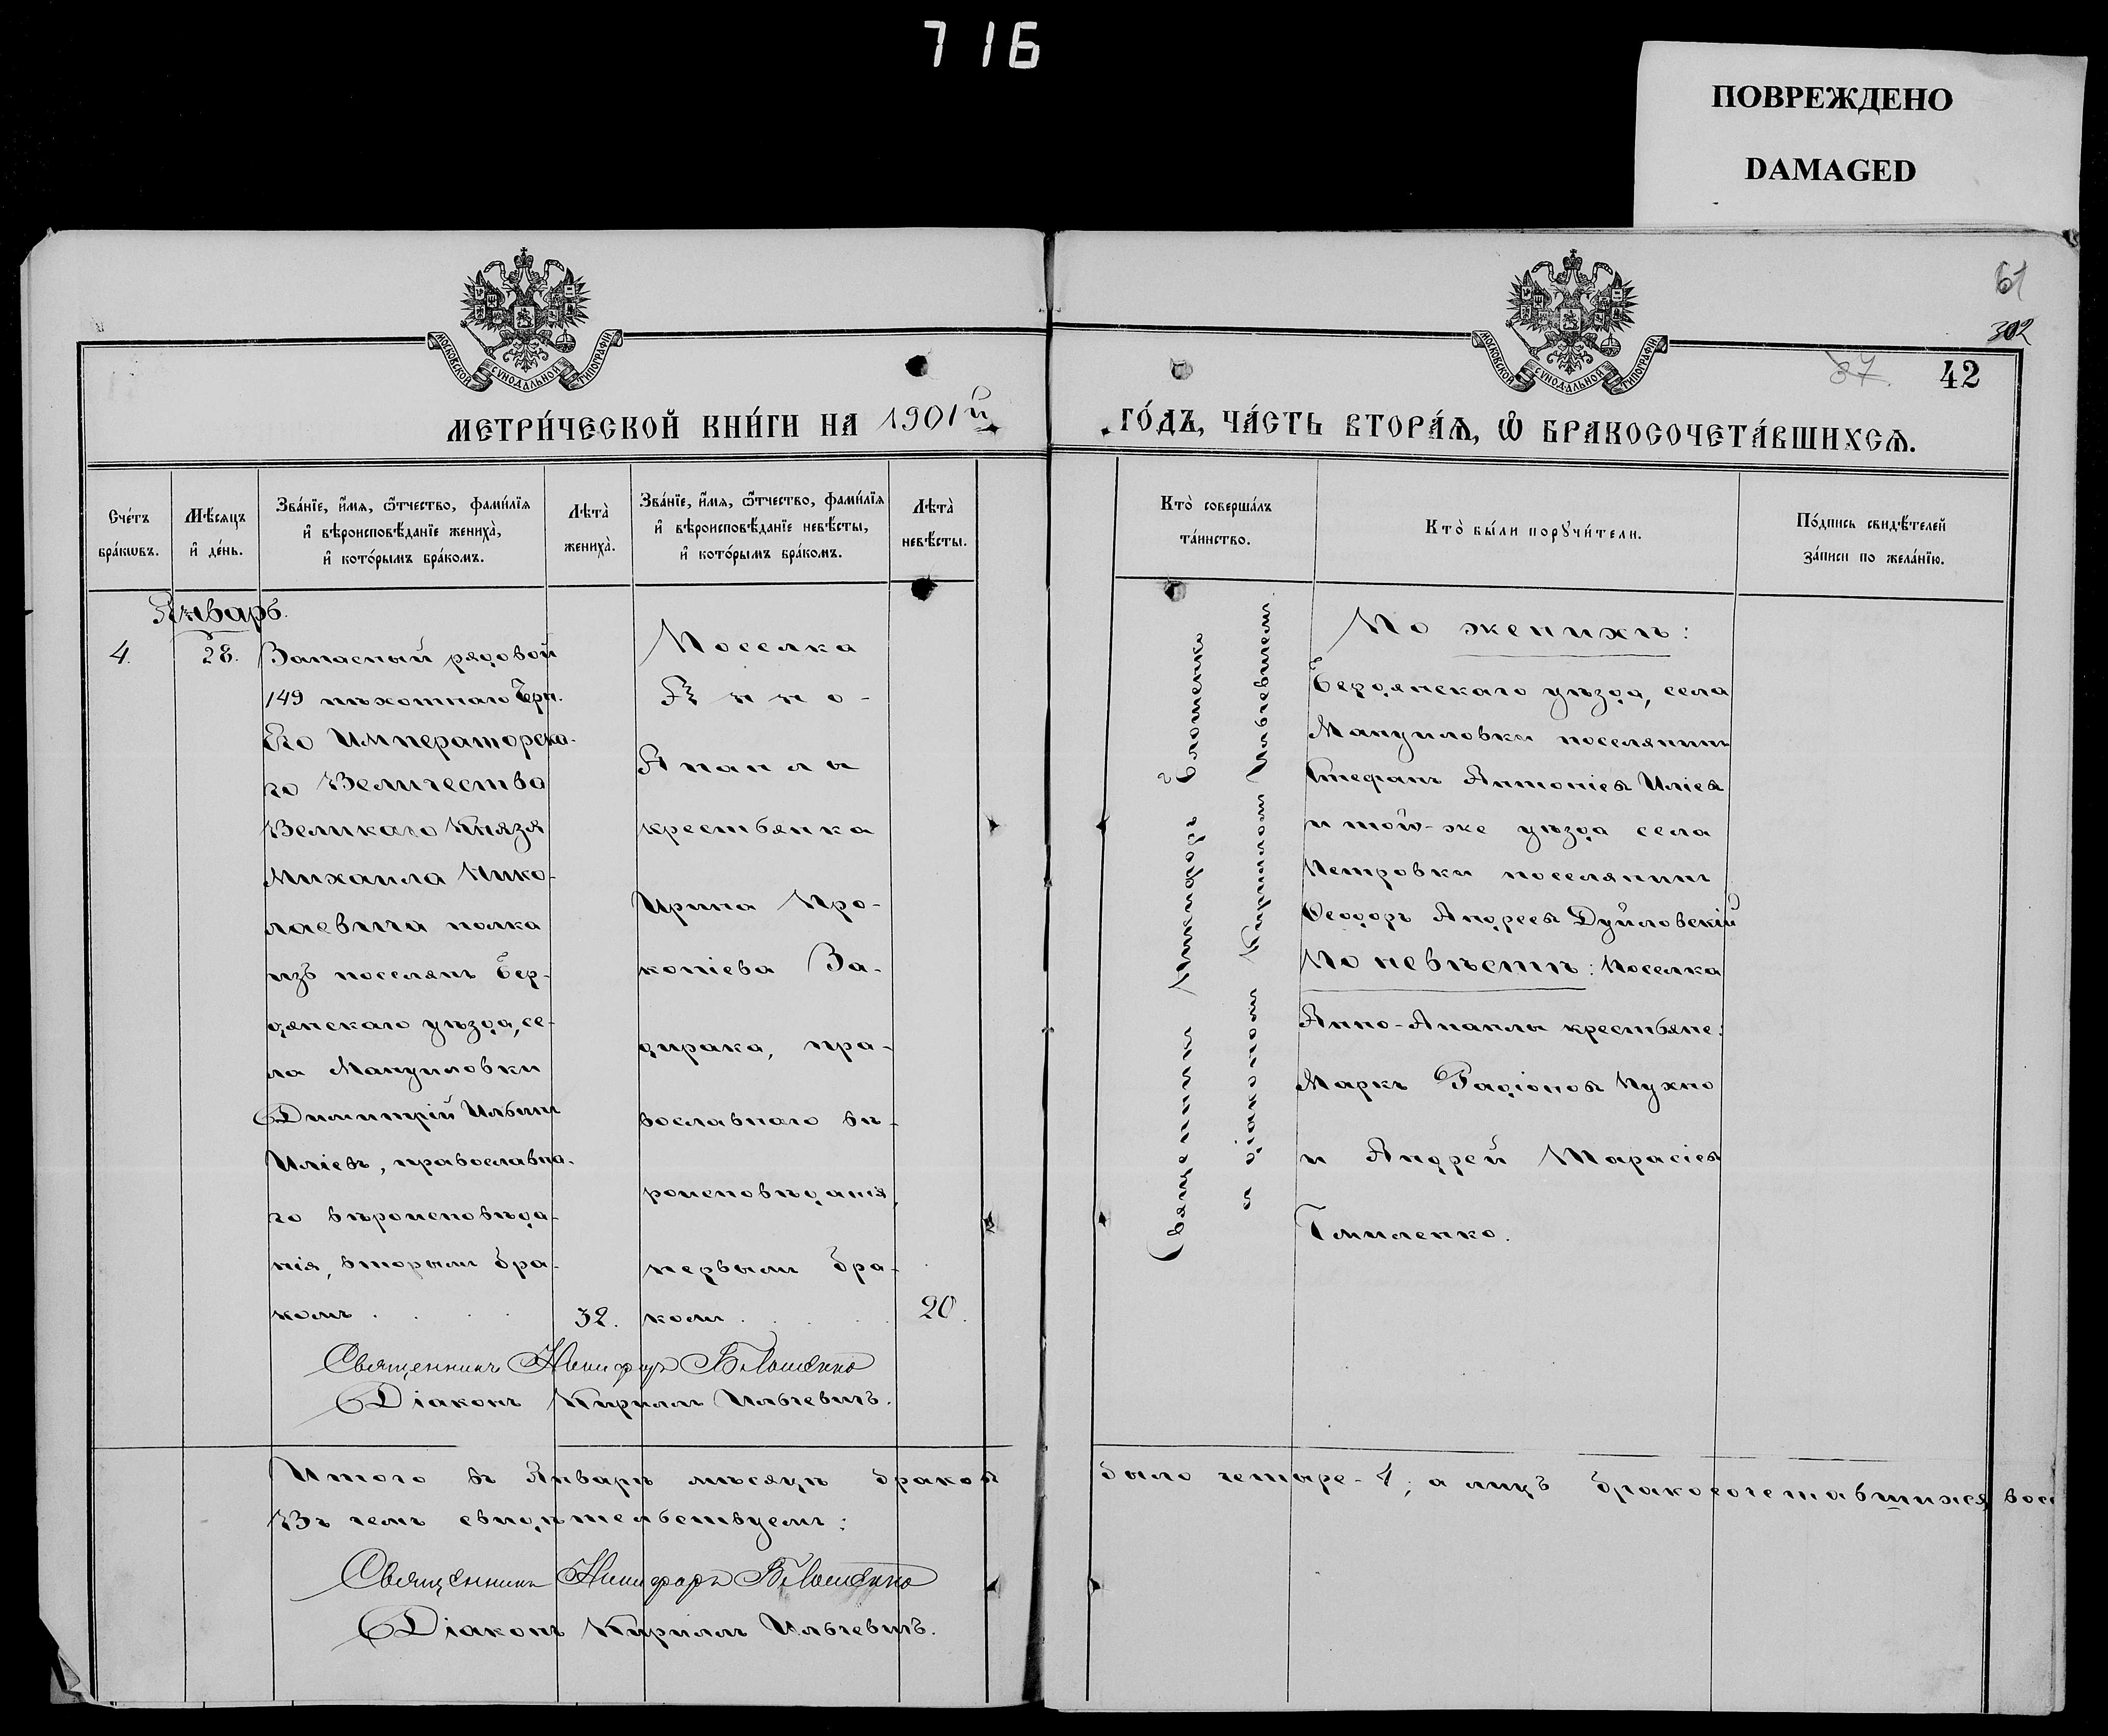 716
ПОВРЕЖДЕНО
DAMAGED
61
302
37.
42
МОСКОВСКОЙ СѴНОДАЛЬНОЙ ТИПОГРАФІИ
МОСКОВСКОЙ СѴНОДАЛЬНОЙ ТИПОГРАФІИ
МЕТРИ́ЧЕСКОЙ КНИ́ГИ НА 1901й
ГО́ДЪ, ЧА́СТЬ ВТОРА́Ѧ, Ѽ БРАКОСОЧЕТА́ВШИХСѦ.
Сче́тъ
бра́кѡвъ.
Мѣ́сяцъ
и҆ де́нь.
Зва́нїе, и҆́мя, ѻ҆́тчество, фами́лїя
и҆ вѣроисповѣ́данїе жениха̀,
и҆ кото́рымъ бра́комъ.
Лѣта̀
жениха̀.
Зва́нїе, и҆́мя, ѻ҆́тчество, фами́лїя
и҆ вѣроисповѣ́данїе невѣ́сты,
и҆ кото́рымъ бра́комъ.
Лѣта̀
невѣ́сты.
Кто̀ соверша́лъ
та́инство.
Кто̀ бы́ли порꙋчи́тели.
По́дпись свидѣ́телей
за́писи по жела́нїю.
Январь.
4.
28.
Запасный рядовой
149 пѣхотнаго Черн.
Его Императорска-
го Величества
Великаго Князя
Михаила Нико-
лаевича полка
изъ поселянъ Бер-
дянскаго уѣзда, се-
ла Мануиловки
Димитрій Ильинъ
Иліевъ, православна-
го вѣроисповѣда-
нія, вторымъ бра-
комъ . . . .
32.
Поселка
Анно-
Анапла
крестьянка
Ирина Про-
копіева За-
дирака, пра-
вославнаго вѣ-
роисповѣданія,
первымъ бра-
комъ . . . .
20.
Священникъ Никифоръ Блошенко
съ діакономъ Кирилломъ Ильчевичемъ.
По женихѣ:
Бердянскаго уѣзда, села
Мануиловки поселянинъ
Стефанъ Антоніевъ Иліевъ
и того-же уѣзда села
Петровки поселянинъ
Ѳеодоръ Андреевъ Дуйловскій
По невѣстѣ: Поселка
Анно-Анаплы крестьяне:
Маркъ Радіоновъ Пухно
и Андрей Тарасіевъ
Гмиленко.
Священникъ Никифоръ Блошенко
Діаконъ Кириллъ Ильчевичъ.
Итого въ Январѣ мѣсяцѣ браковъ было четыре - 4; а лицъ бракосочетавшихся
Въ чемъ свидѣтельствуемъ:
Священникъ Никифоръ Блошенко
Діаконъ Кириллъ Ильчевичъ.